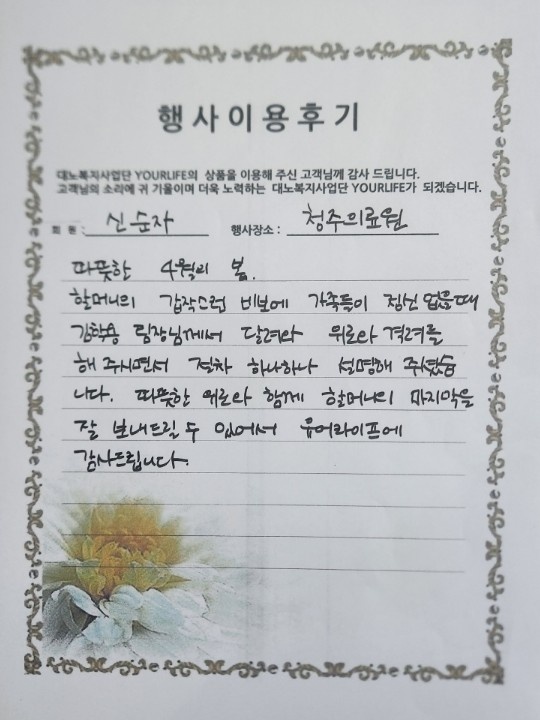 행사이용후기
대노복지사업단 YOURLIFE의 상품을 이용해 주신 고객님께 감사 드립니다.
고객님의 소리에 귀 기울이며 더욱 노력하는 대노복지사업단 YOURLIFE가 되겠습니다.
회 원 : 신순자 행사장소 : 청주의료원
따뜻한 4월의 봄.
할머니의 갑작스런 비보에 가족들이 정신 없을때
팀장님께서 달려와 위로와 격려를
해 주시면서 절차 하나하나 설명해 주셨습
니다. 따뜻한 위로와 함께 할머니의 마지막을
잘 보내드릴 수 있어서 유어라이프에
감사드립니다.